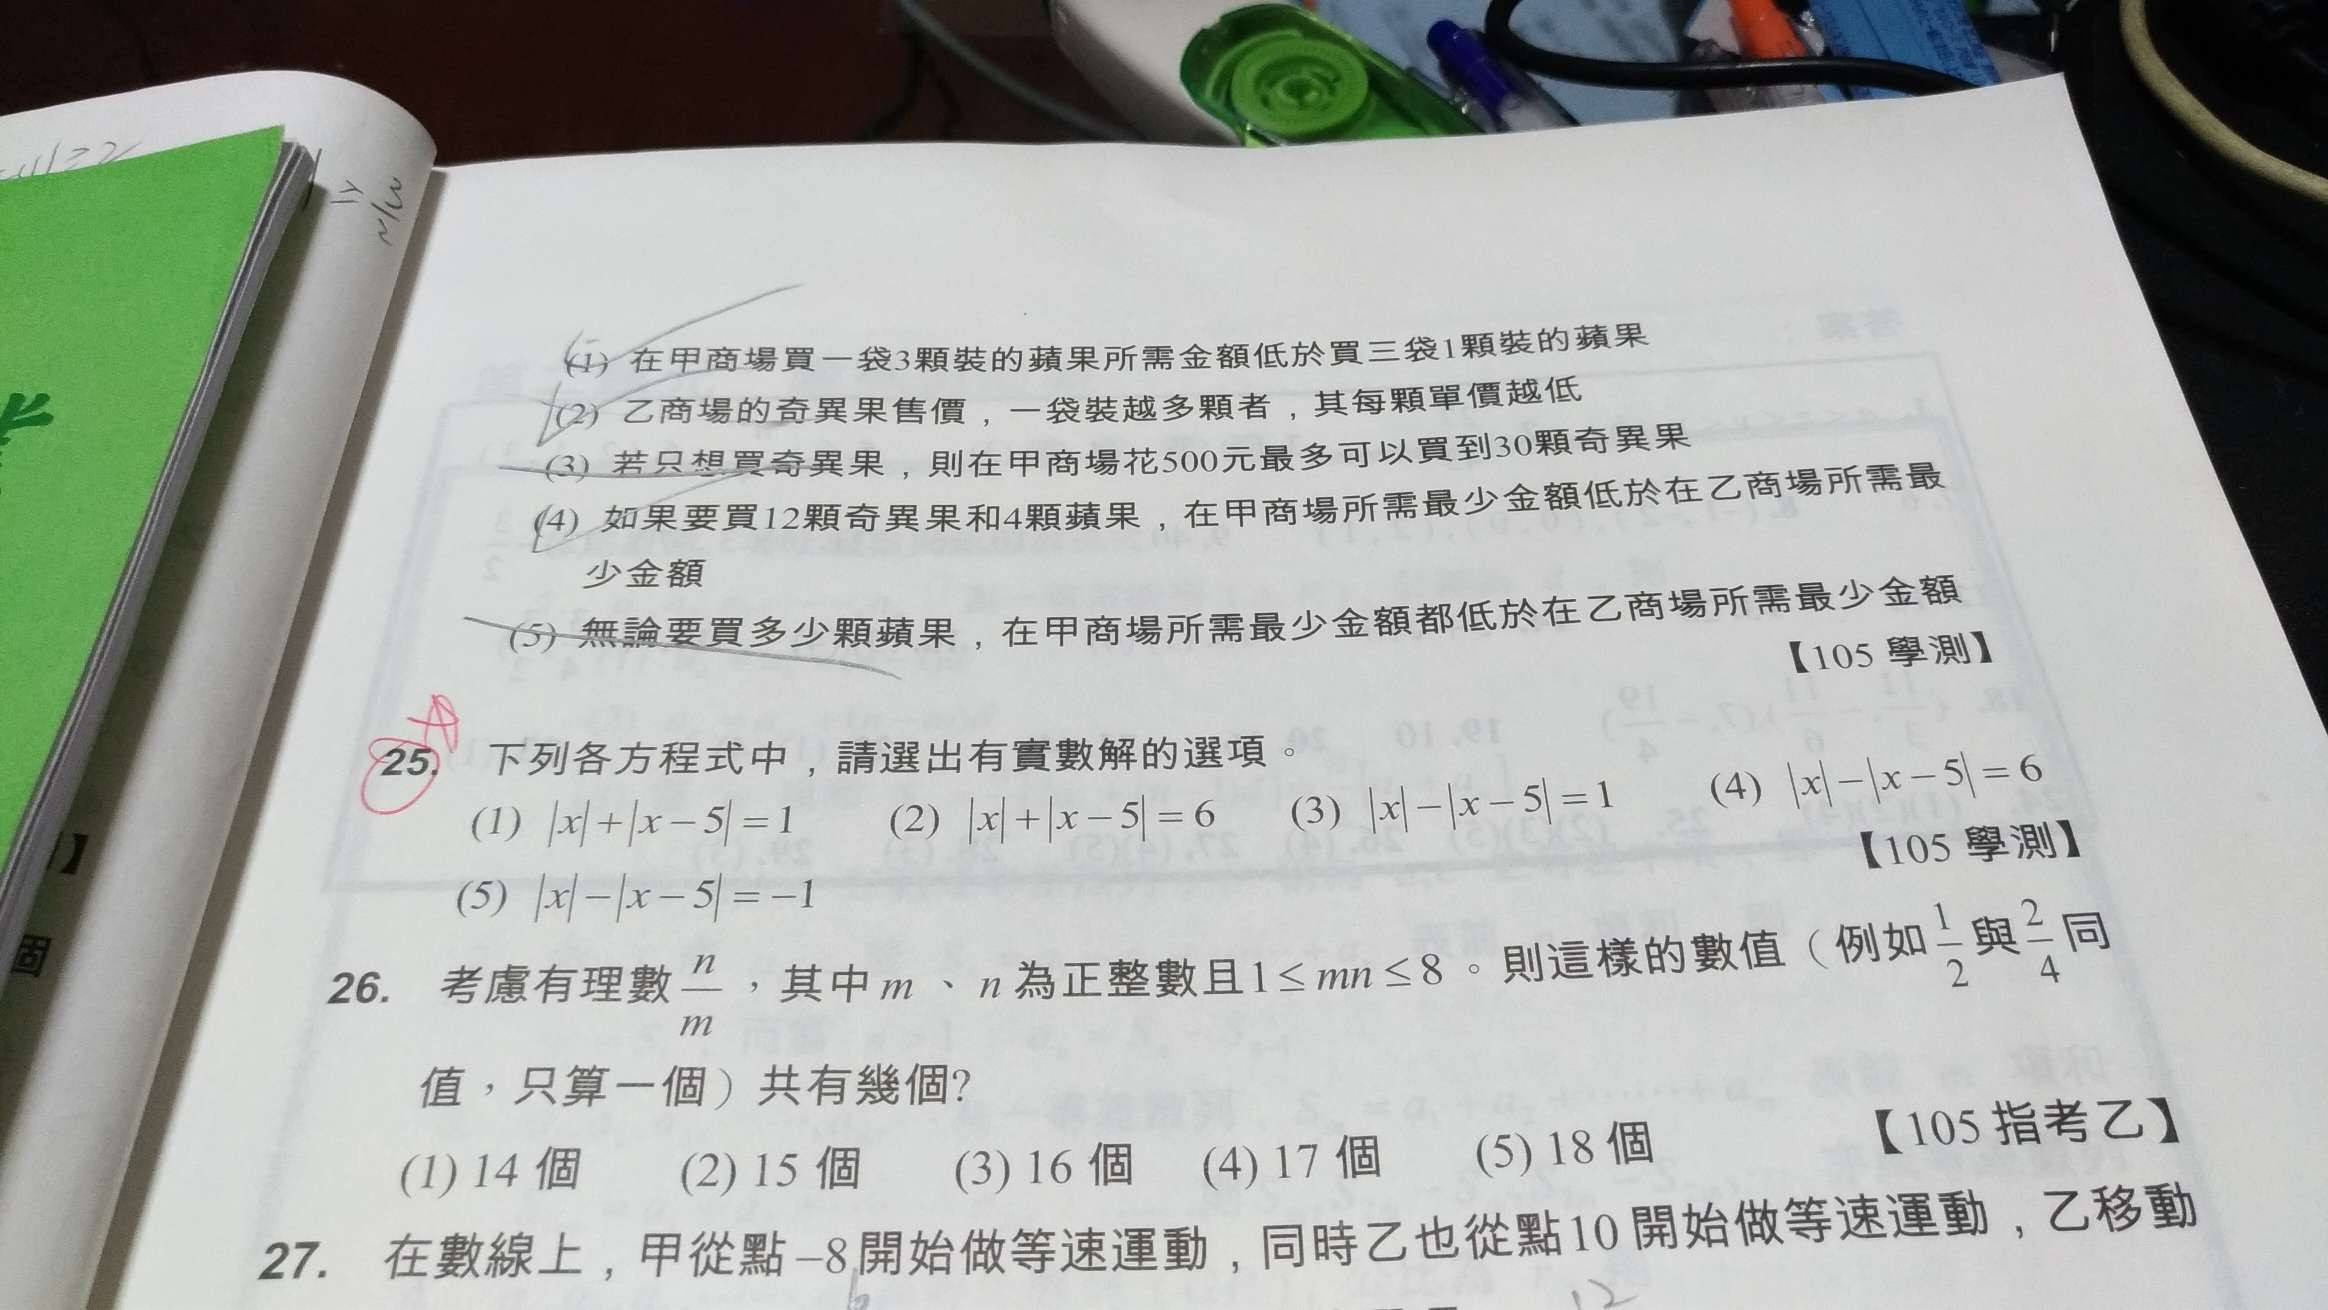 (1) 在甲商場買一袋3顆裝的蘋果所需金額低於買三袋1顆裝的蘋果
(2) 乙商場的奇異果售價，一袋裝越多顆者，其每顆單價越低
(3) 若只想買奇異果，則在甲商場花500元最多可以買到30顆奇異果
(4) 如果要買12顆奇異果和4顆蘋果，在甲商場所需最少金額低於在乙商場所需最
少金額
(5) 無論要買多少顆蘋果，在甲商場所需最少金額都低於在乙商場所需最少金額
【105 學測】
25. 下列各方程式中，請選出有實數解的選項。
(1) |x|+|x−5|=1 (2) |x|+|x−5|=6 (3) |x|−|x−5|=1 (4) |x|−|x−5|=6
(5) |x|−|x−5|=−1 【105 學測】
26. 考慮有理數 n/m，其中 m、n 為正整數且 1≤mn≤8。則這樣的數值（例如 1/2 與 2/4 同
值，只算一個）共有幾個?
(1) 14 個 (2) 15 個 (3) 16 個 (4) 17 個 (5) 18 個 【105 指考乙】
27. 在數線上，甲從點−8開始做等速運動，同時乙也從點10開始做等速運動，乙移動
12